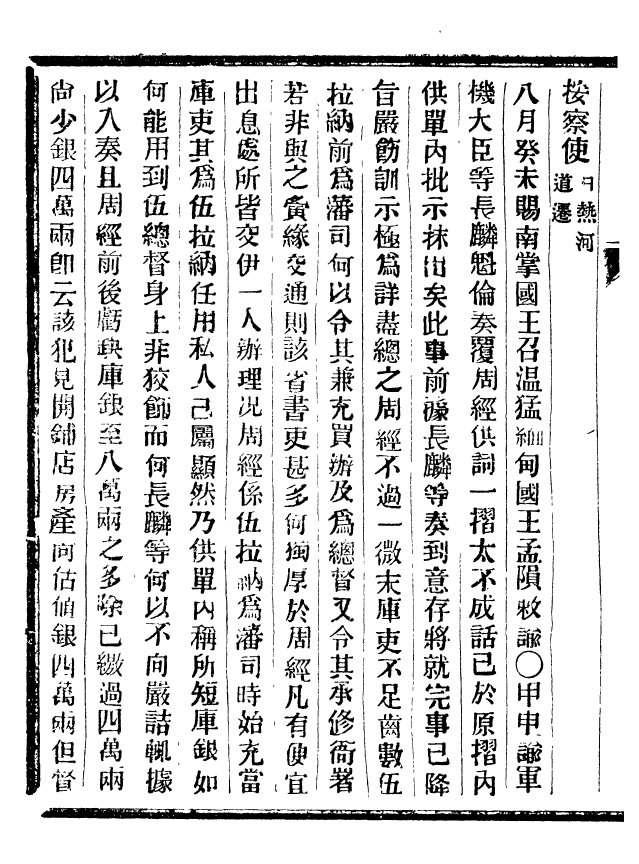 按察使由熱河道遷
八月癸未賜南掌國王召温猛緬甸國王孟隕敕諭〇甲申諭軍
機大臣等長麟魁倫奏覆周經供詞一摺太不成話已於原摺内
供單内批示抹出矣此事前據長麟等奏到意存將就完事已降
旨嚴飭訓示極爲詳盡總之周經不過一微末庫吏不足齒數伍
拉納前爲藩司何以令其兼充買辦及爲總督又令其承修衙署
若非與之夤緣交通則該省書吏甚多何獨厚於周經凡有便宜
出息處所皆交伊一人辦理况周經係伍拉納爲藩司時始充當
庫吏其爲伍拉納任用私人已屬顯然乃供單内稱所短庫銀如
何能用到伍總督身上非狡飾而何長麟等何以不向嚴詰輒據
以入奏且周經前後虧缺庫銀至八萬兩之多除已繳過四萬兩
尚少銀四萬兩即云該犯見開鋪店房產向估值銀四萬兩但督